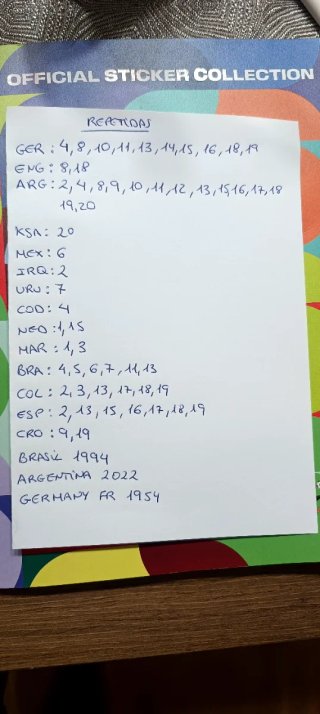 OFFICIAL STICKER COLLECTION
REPETIDAS
GER: 4, 8, 10, 11, 13, 14, 15, 16, 18, 19
ENG: 8, 18
ARG: 2, 4, 8, 9, 10, 11, 12, 13, 15, 16, 17, 18
19, 20
KSA: 20
MEX: 6
IRQ: 2
URU: 7
COD: 4
NED: 1, 15
MAR: 1, 3
BRA: 4, 5, 6, 7, 11, 13
COL: 2, 3, 13, 17, 18, 19
ESP: 2, 13, 15, 16, 17, 18, 19
CRO: 9, 19
BRASIL 1994
ARGENTINA 2022
GERMANY FR 1954